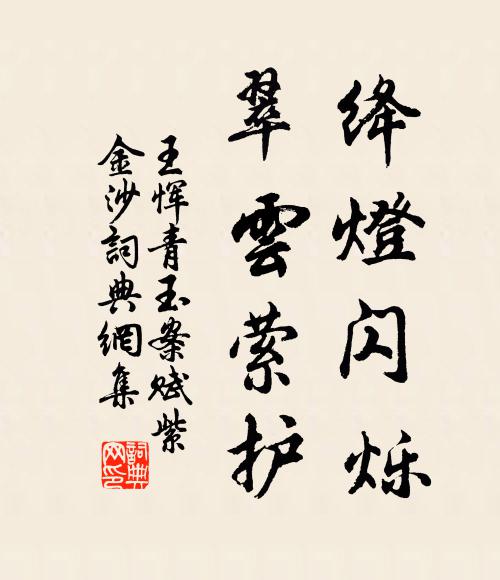 绛燈闪烁
翠雲萦护
王恽青玉案赋紫
金沙詞典網集
詞典网印